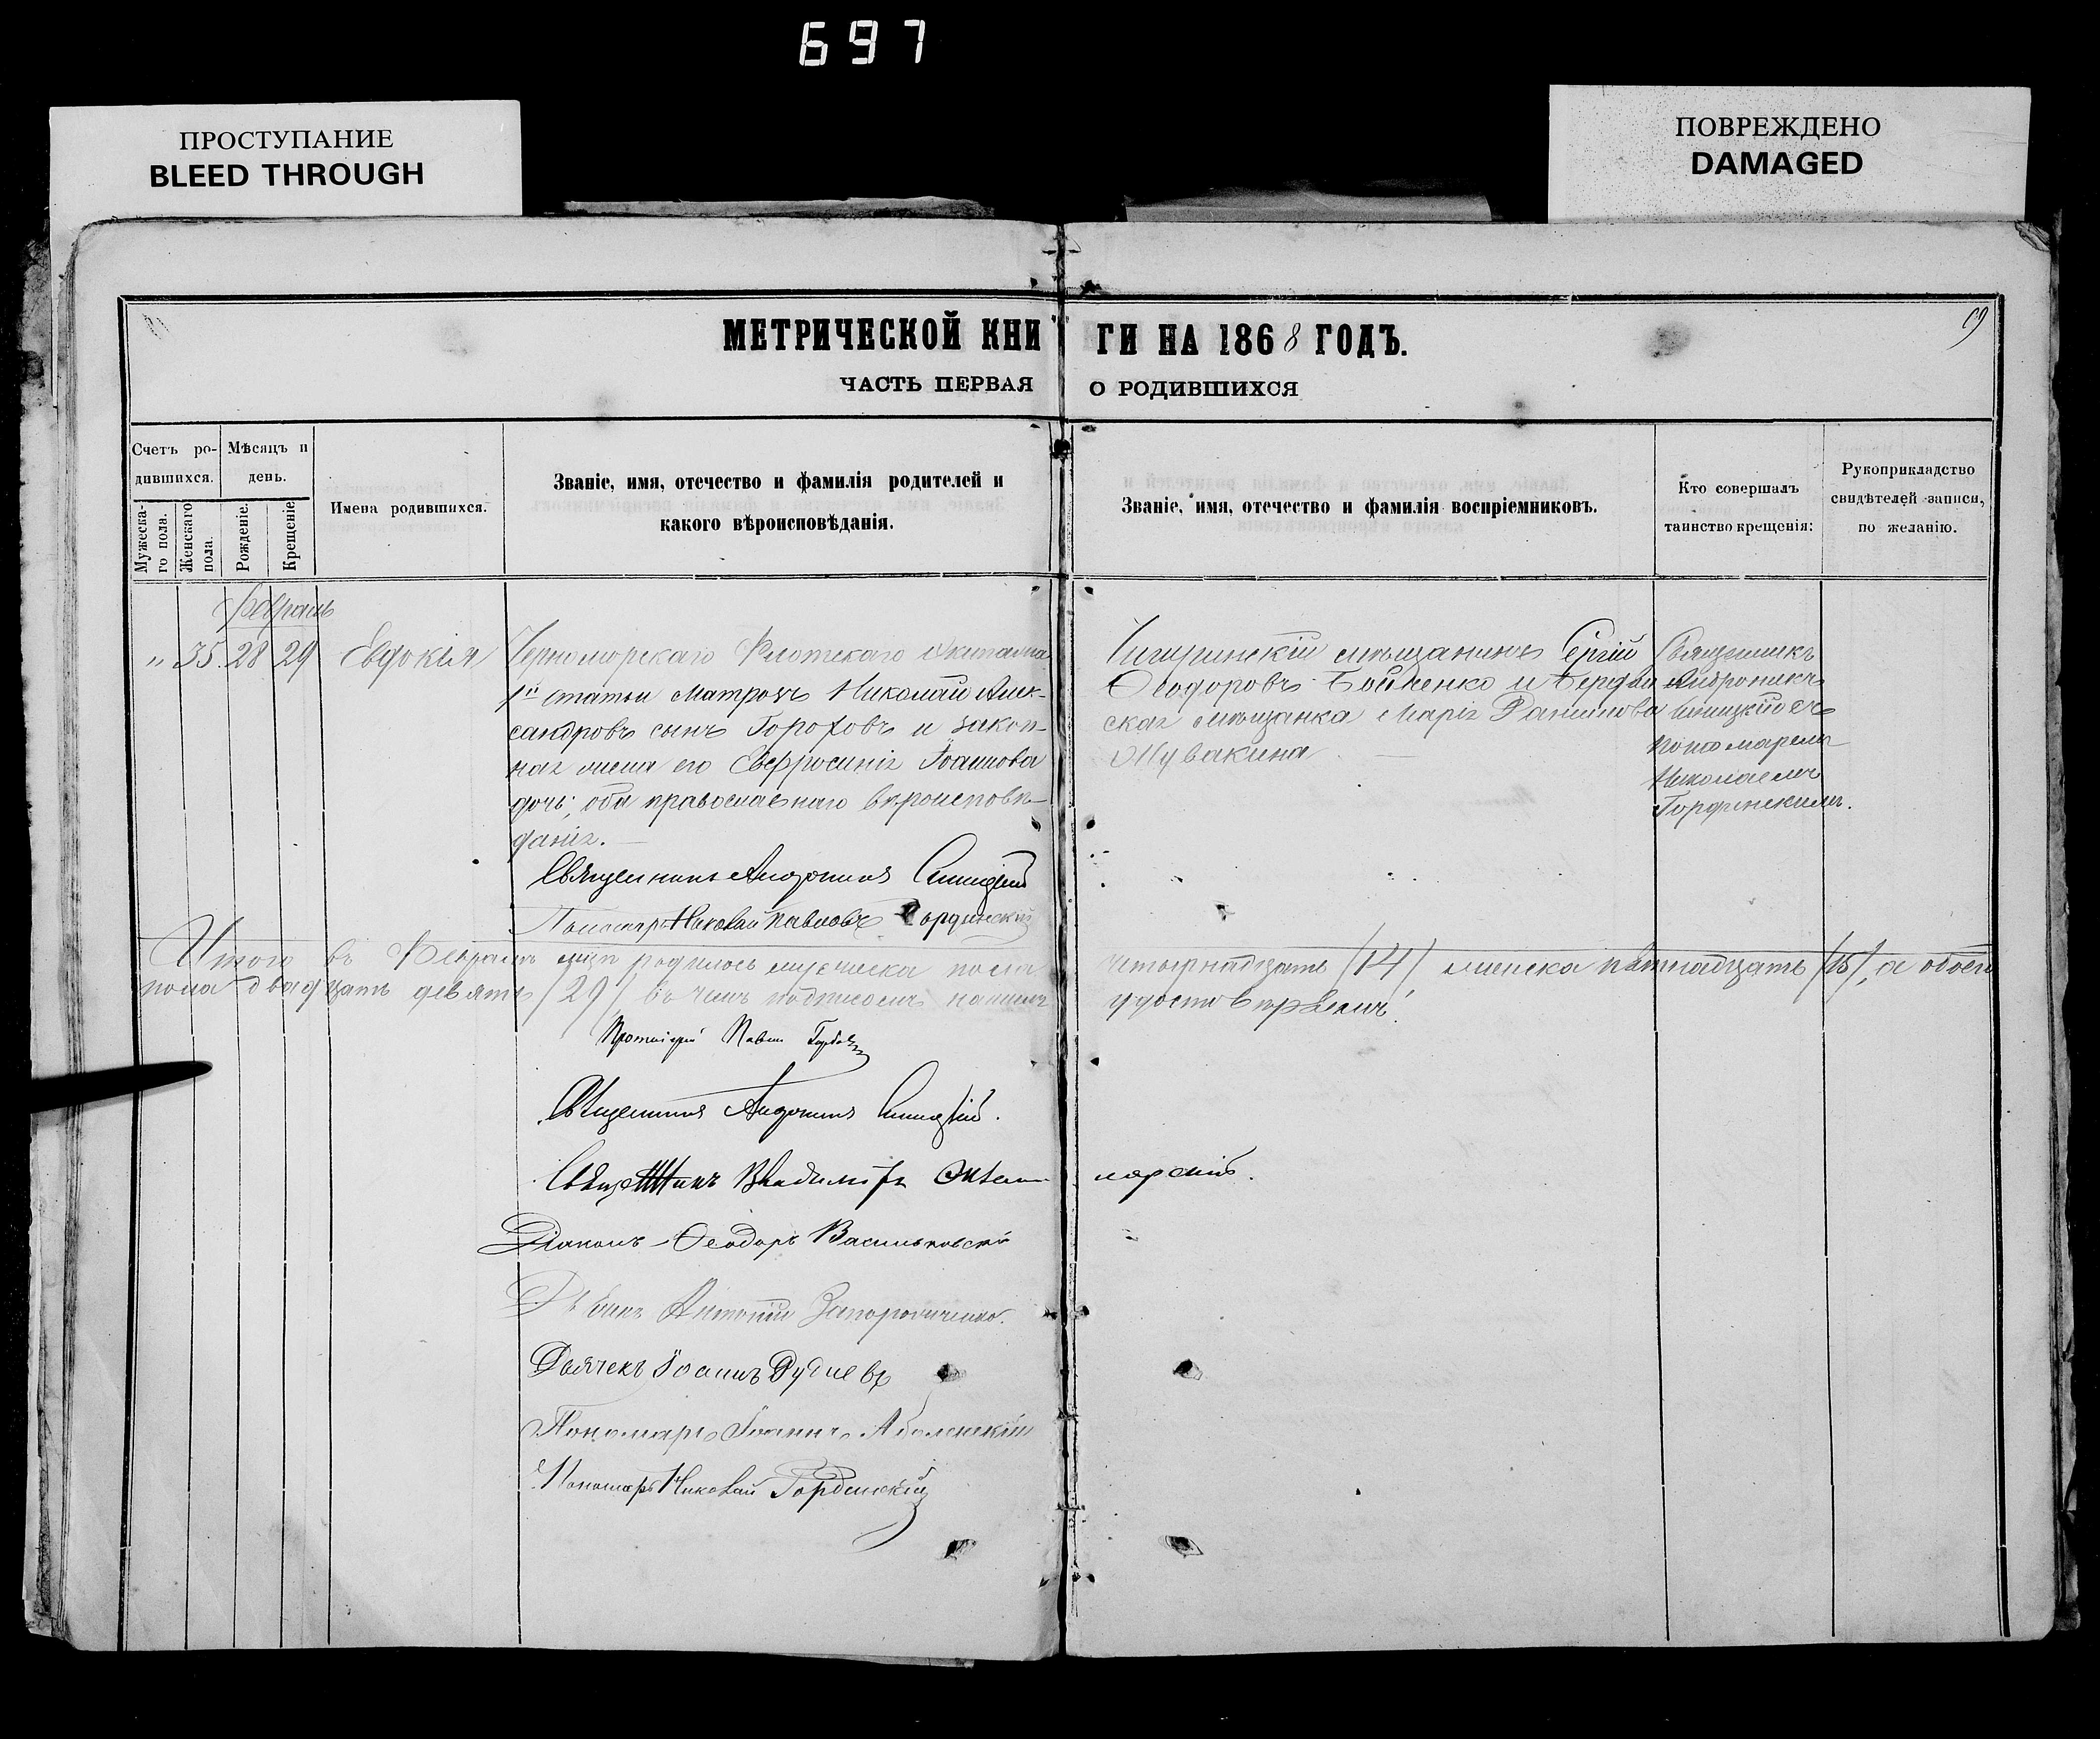 697
ПРОСТУПАНИЕ
BLEED THROUGH
ПОВРЕЖДЕНО
DAMAGED
9
МЕТРИЧЕСКОЙ КНИГИ НА 1868 ГОДЪ.
ЧАСТЬ ПЕРВАЯ О РОДИВШИХСЯ
Счетъ ро-
дившихся.
Мужеска-
го пола.
Женскаго
пола.
Мѣсяцъ и
день.
Рожденіе.
Крещеніе
Имена родившихся.
Званіе, имя, отечество и фамилія родителей и
какого вѣроисповѣданія.
Званіе, имя, отечество и фамилія воспріемниковъ.
Кто совершалъ
таинство крещенія:
Рукоприкладство
свидѣтелей записи,
по желанію.
Февраль
" 35. 28 29 Евдокія
Черноморскаго Флотскаго Экипажа
1й статьи матрозъ Николай Алек-
сандровъ сынъ Гороховъ и закон-
ная жена его Евфросинія Іоаннова
дочь; оба православнаго вѣроисповѣ-
данія.
Чигиринскій мѣщанинъ Сергій
Ѳеодоровъ Бойченко и Бердян
ская мѣщанка Марія
Жувакина
Священникъ
Андроникъ
Синицкій съ
пономаремъ
Николаемъ
Гординскимъ.
Священникъ Андроникъ Синицкій
Пономарь Николай Павловъ Гординскій
Итого въ Февралѣ мцѣ родилось мужеска пола четырнадцать /14/ женска пятнадцать /15/, а обоего
пола двадцать девять /29/ въ чемъ подписомъ нашимъ удостовѣряемъ.
Протоіерей Павелъ
Священникъ Андроникъ Синицкій.
Священникъ Владиміръ
Діаконъ Ѳеодоръ Васильковскій
Антоній Запорожченко.
Дьячекъ Іоаннъ Рудневъ
Пономарь Іоаннъ Оболенскій
Пономарь Николай Гординскій